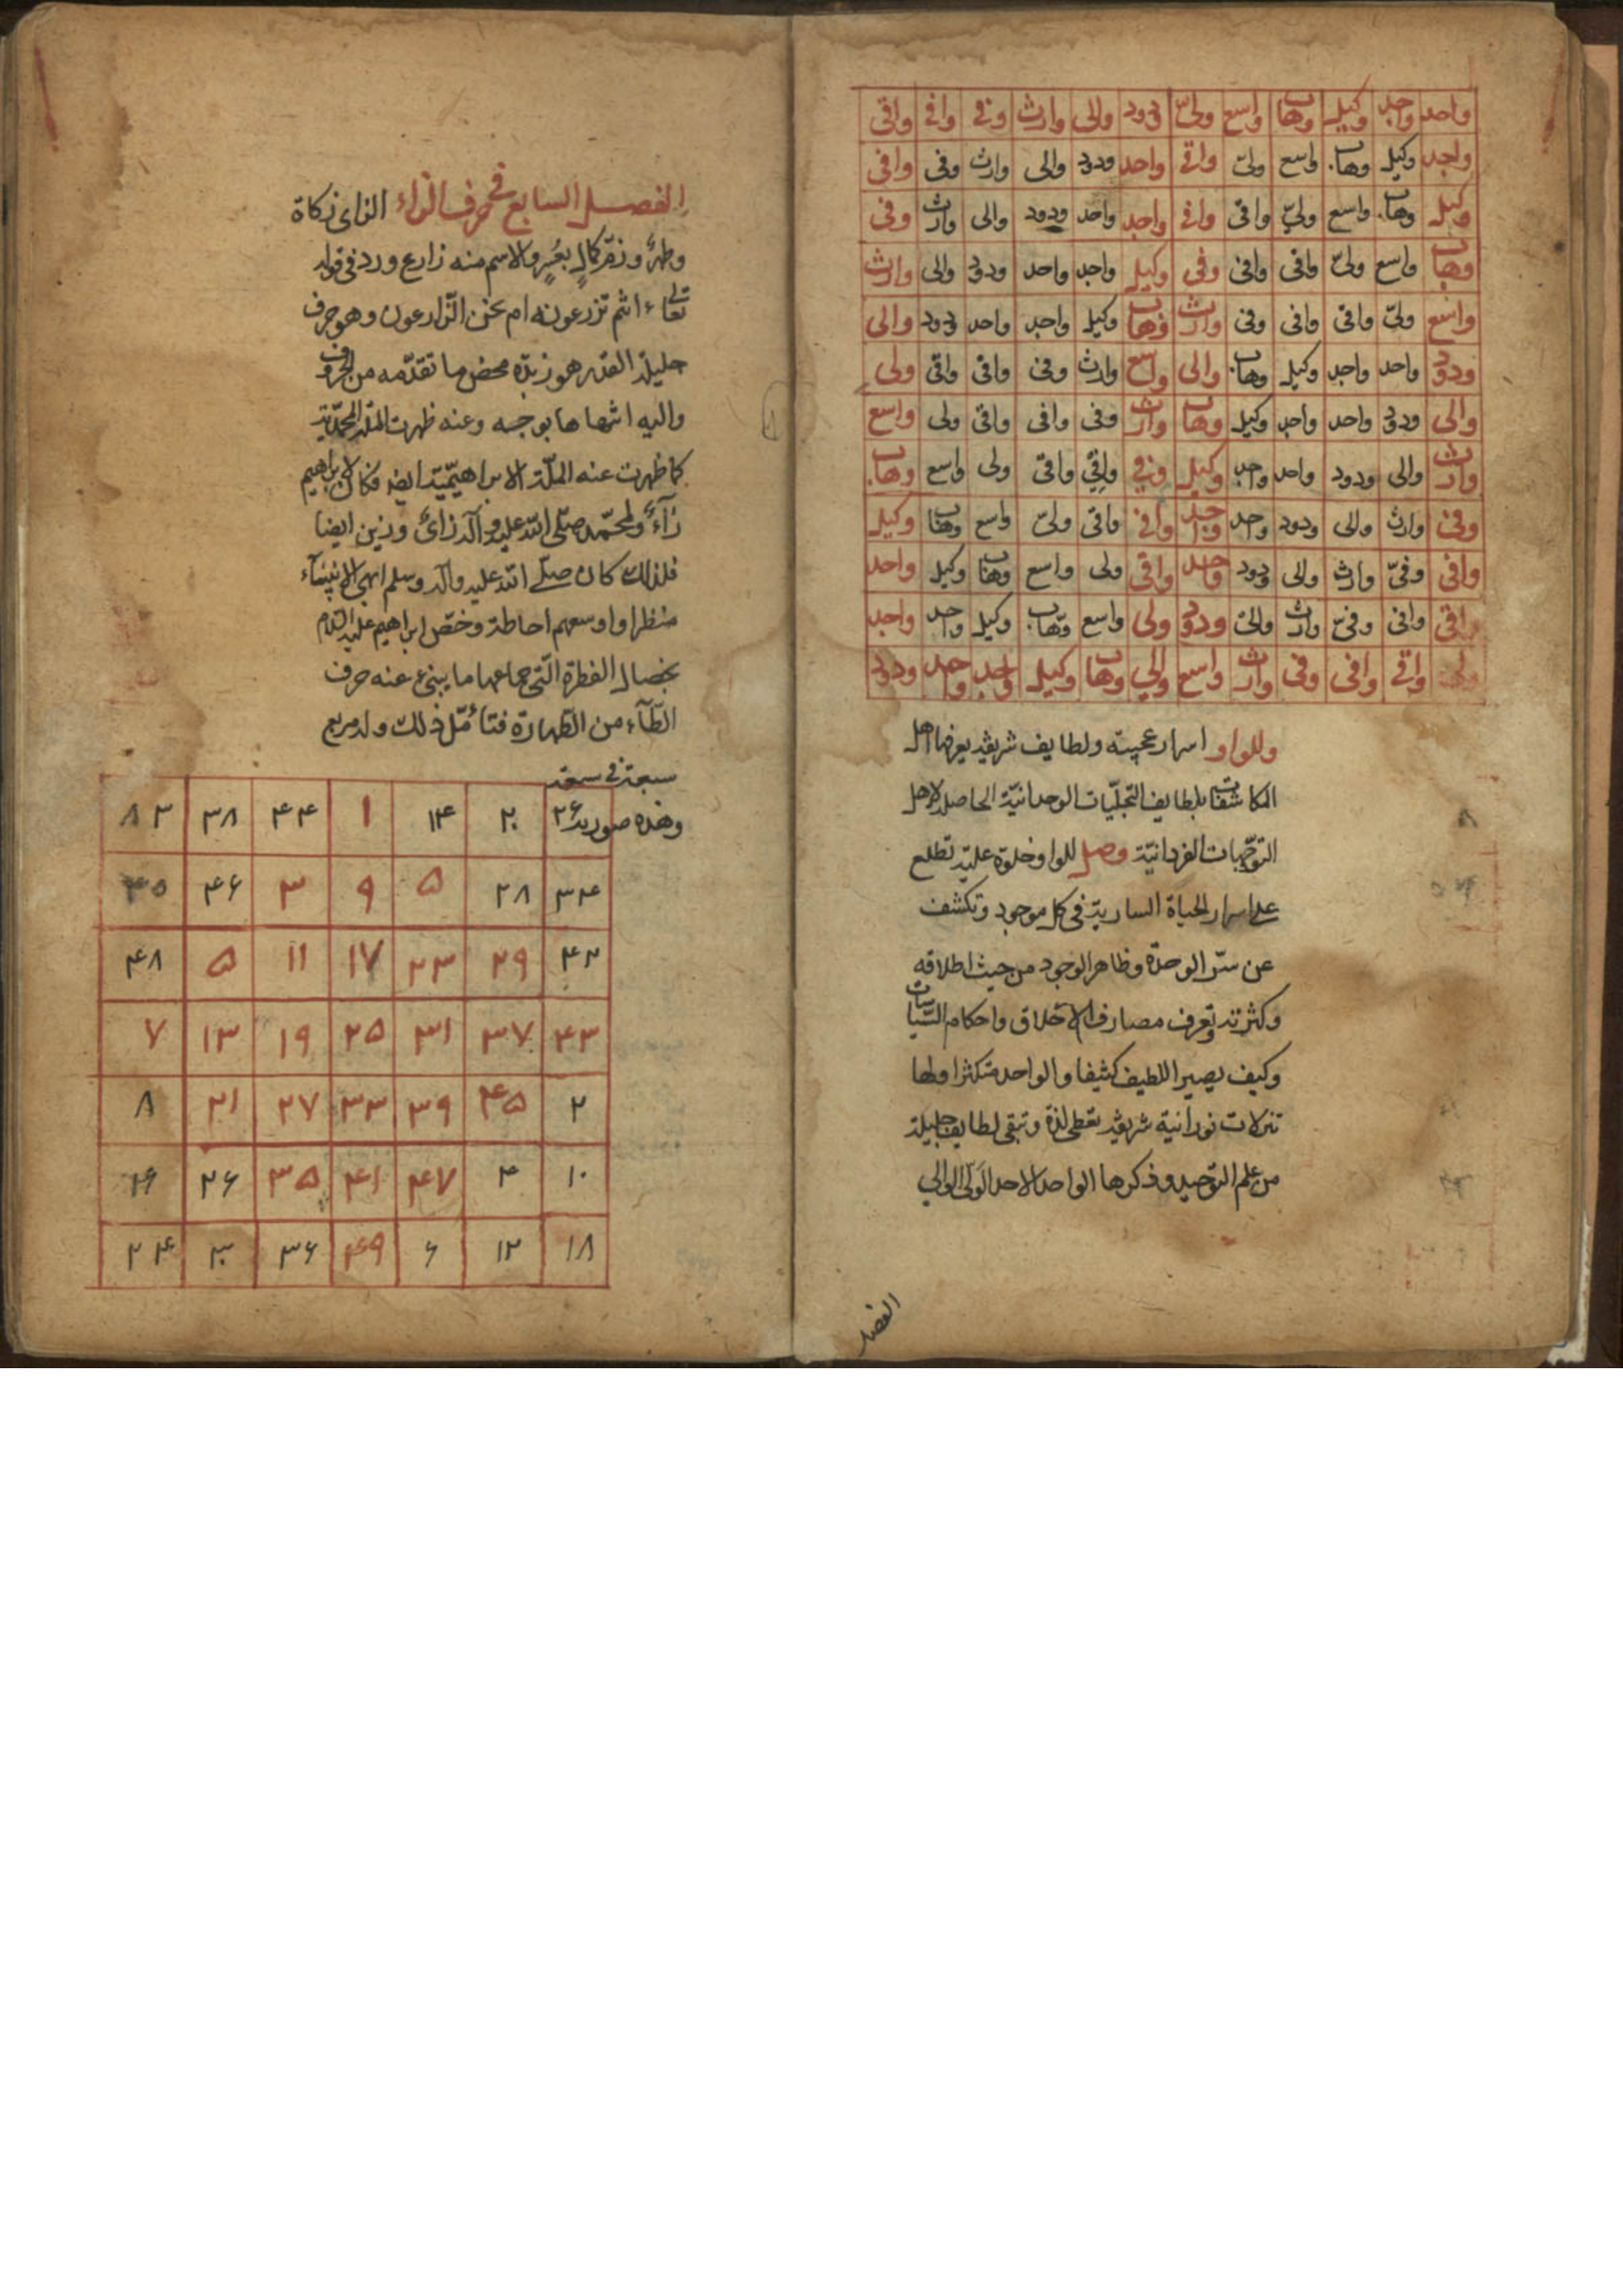 واحد واجد وكيل وهاب واسع ولي ودود والى وارث وفي وافي واقى
واجد وكيل وهاب واسع ولى واقى واحد ودود والى وارث وفى وافى
وكيل وهاب واسع ولي واقى وافى واجد واحد ودود والى وارث وفى
وهاب واسع ولى واقى وافى وفى وكيل واجد واحد ودود والى وارث
واسع ولى واقى وافى وفى وارث وهاب وكيل واجد واحد ودود والى
ودود واحد واجد وكيل وهاب والى واسع وارث وفى وافى واقى ولى
والى ودود واحد واجد وكيل وهاب وارث وفى وافى واقى ولى واسع
وارث والى ودود واحد واجد وكيل وفي وافي واقى ولى واسع وهاب
وفى وارث والى ودود واحد واجد وافى واقى ولى واسع وهاب وكيل
وافى وفى وارث والى ودود واحد واقى ولى واسع وهاب وكيل واجد
واقى وافى وفى وارث والى ودود ولى واسع وهاب وكيل واحد واجد
واقى وافى وفى وارث واسع والي وهاب وكيل واجد واحد ودود
وللواو اسرار عجيبة ولطايف شريفة يعرفها اهل
المكاشفات بلطايف التجليّات الوحدانيّة الحاصل لاهل
التوجّهات الفردانيّة وصل للواو خلوة عليّة تطلع
على اسرار الحياة السارية فى كل موجود وتكشف
عن سرّ الوحدة وظاهر الوجود من حيث اطلاقه
وكثرته وتعرف مصارف الاخلاق واحكام السّياسات
وكيف يصير اللطيف كثيفا والواحد متكثرا ولها
تنزلات نورانية شريفة تعطى لذة وتبقى لطايف جليلة
من علم التوحيد وذكرها الواحد الاحد الولى الوالي
الفصل
الفصل السابع فى حرف الزاء الزاى زكاة
وطهر وزمّر كمال بعُسرٍ والاسم منه زارع ورد فى قوله
تعالى ءانتم تزرعونه ام نحن الزّارعون وهو حرف
جليل القدر هو زبدة محض ما تقدّمه من الحروف
واليه انتهاها بوجه وعنه ظهرت الملّة المحمّديّة
كما ظهرت عنه الملّة الابراهيميّة ايضا فكان لابراهيم
زآءٌ ولمحمّد صلى الله عليه وآله زائ وزين ايضا
فلذلك كان صلى الله عليه وآله وسلم ابهى الانبيآء
منظرا واوسعهم احاطة وخصّ ابراهيم عليه السّلام
بخصال الفطرة الّتى جماعها ما ينبئ عنه حرف
الطّآء من الطّهارة فتأمّل ذلك وله مربع
سبعة فى سبعة
وهذه صورته
۲۶ ۲۰ ۱۴ ۱ ۴۴ ۳۸ ۳۲ ۸
۳۴ ۲۸ ۵ ۹ ۳ ۴۶ ۴۰
۴۲ ۲۹ ۲۳ ۱۷ ۱۱ ۵ ۴۸
۴۳ ۳۷ ۳۱ ۲۵ ۱۹ ۱۳ ۷
۲ ۴۵ ۳۹ ۳۳ ۲۷ ۲۱ ۸
۱۰ ۴ ۴۷ ۴۱ ۳۵ ۲۶ ۱۶
۱۸ ۱۲ ۶ ۴۹ ۳۶ ۳۰ ۲۴